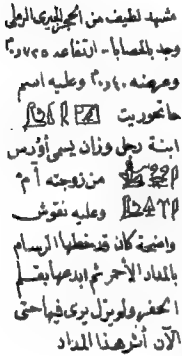 مشهد لطيف من الحجر الجيرى الرملى
وجد بالعصابا - ارتفاعه ٧٢٥ر٠م
وعرضه ٤٠ر٠م وعليه اسم
حاتحوريت
ابنة رجل وزان يسمى أوزس
من زوجته آم
وعليه نقوش
واضحة كان قد خطها الرسام
بالمداد الأحمر ثم ابدعها بقلم
الحفر ولم يزل يرى فيها حتى
الآن أثر هذا المداد